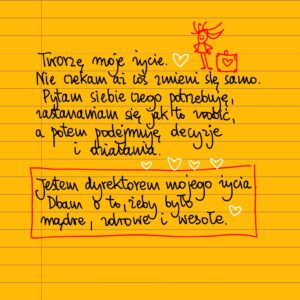 Tworzę moje życie.
Nie czekam aż coś zmieni się samo.
Pytam siebie czego potrzebuję,
zastanawiam się jak to zrobić,
a potem podejmuję decyzje
i działania.
Jestem dyrektorem mojego życia
Dbam o to, żeby było
mądre, zdrowe i wesołe.